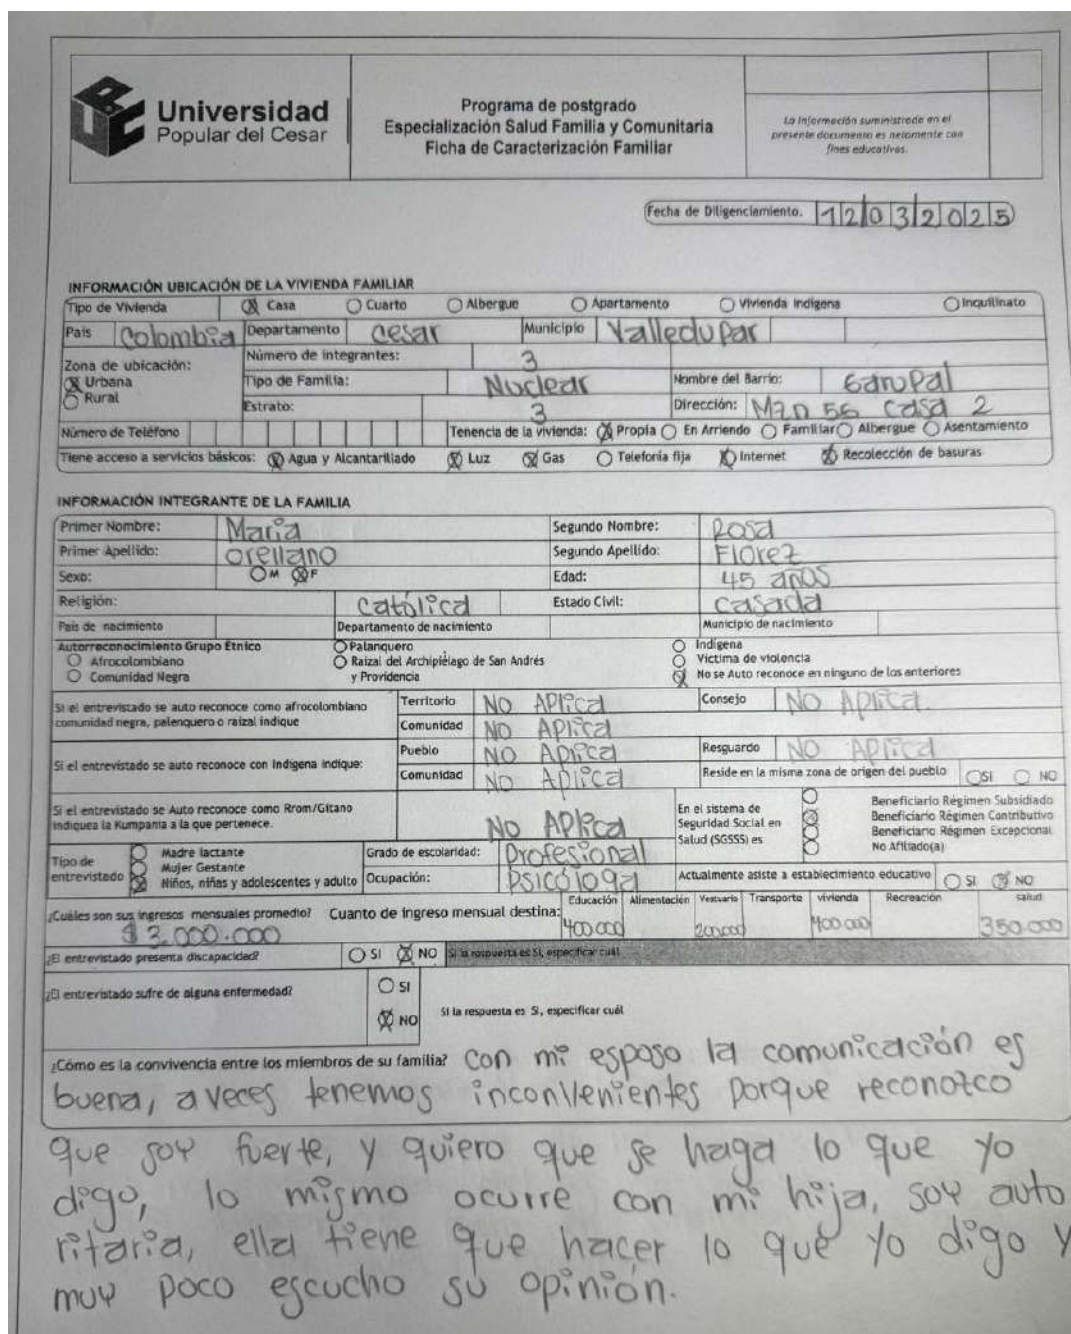 Universidad
Popular del Cesar
Programa de postgrado
Especialización Salud Familia y Comunitaria
Ficha de Caracterización Familiar
La Información suministrada en el
presente documento es netamente con
fines educativos.
Fecha de Diligenciamiento. 12032025
INFORMACIÓN UBICACIÓN DE LA VIVIENDA FAMILIAR
Tipo de Vivienda Casa Cuarto Albergue Apartamento Vivienda Indígena Inquilinato
País Colombia Departamento cesar Municipio Valledupar
Zona de ubicación:
Urbana
Rural
Número de integrantes: 3
Tipo de Familia: Nuclear Nombre del Barrio: Garupal
Estrato: 3 Dirección: Mzn 56 casa 2
Número de Teléfono Tenencia de la vivienda: Propia En Arriendo Familiar Albergue Asentamiento
Tiene acceso a servicios básicos: Agua y Alcantarillado Luz Gas Telefonía fija Internet Recolección de basuras
INFORMACIÓN INTEGRANTE DE LA FAMILIA
Primer Nombre: María Segundo Nombre: Rosa
Primer Apellido: orellano Segundo Apellido: Florez
Sexo: M F Edad: 45 años
Religión: católica Estado Civil: casada
País de nacimiento Departamento de nacimiento Municipio de nacimiento
Autorreconocimiento Grupo Étnico
Afrocolombiano
Comunidad Negra
Palanquero
Raizal del Archipiélago de San Andrés
y Providencia
Indígena
Víctima de violencia
No se Auto reconoce en ninguno de los anteriores
Si el entrevistado se auto reconoce como afrocolombiano
comunidad negra, palenquero o raizal indique
Territorio NO Aplica Consejo NO Aplica.
Comunidad NO Aplica
Si el entrevistado se auto reconoce con Indígena indique:
Pueblo NO Aplica Resguardo NO Aplica
Comunidad NO Aplica Reside en la misma zona de origen del pueblo SI NO
Si el entrevistado se Auto reconoce como Rrom/Gitano
indiquea la Kumpania a la que pertenece.
No Aplica
En el sistema de
Seguridad Social en
Salud (SGSSS) es
Beneficiario Régimen Subsidiado
Beneficiario Régimen Contributivo
Beneficiario Régimen Excepcional
No Afiliado(a)
Tipo de
entrevistado
Madre lactante
Mujer Gestante
Niños, niñas y adolescentes y adulto
Grado de escolaridad: Profesional
Ocupación: Psicóloga Actualmente asiste a establecimiento educativo SI NO
¿Cuáles son sus ingresos mensuales promedio? Cuanto de ingreso mensual destina:
$3.000.000
Educación Alimentación Vestuario Transporte vivienda Recreación salud
400.000 200.000 400.000 350.000
¿El entrevistado presenta discapacidad? SI NO Si la respuesta es Si, especificar cuál
¿El entrevistado sufre de alguna enfermedad?
SI
NO
Si la respuesta es Si, especificar cuál
¿Cómo es la convivencia entre los miembros de su familia? con mi esposo la comunicación es
buena, a veces tenemos inconvenientes porque reconozco
que soy fuerte, y quiero que se haga lo que yo
digo, lo mismo ocurre con mi hija, soy auto
ritaria, ella tiene que hacer lo que yo digo y
muy poco escucho su opinión.